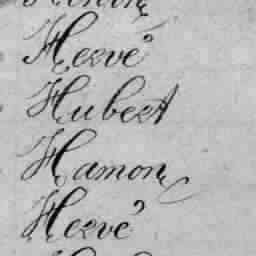 Hervé
Hubert
Hamon
Hervé